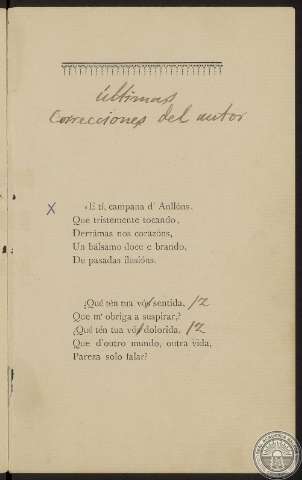 últimas
correcciones del autor
X «E tí, campana d' Anllóns,
Que tristemente tocando,
Derrámas nos corazóns,
Un bálsamo doce e brando,
De pasadas ilusións.
¿Qué tén tua vós sentida, /z
Que m' obriga a suspirar,?
¿Qué tén tua vós dolorida, /z
Que d'outro mundo, outra vida,
Pareza solo falar?